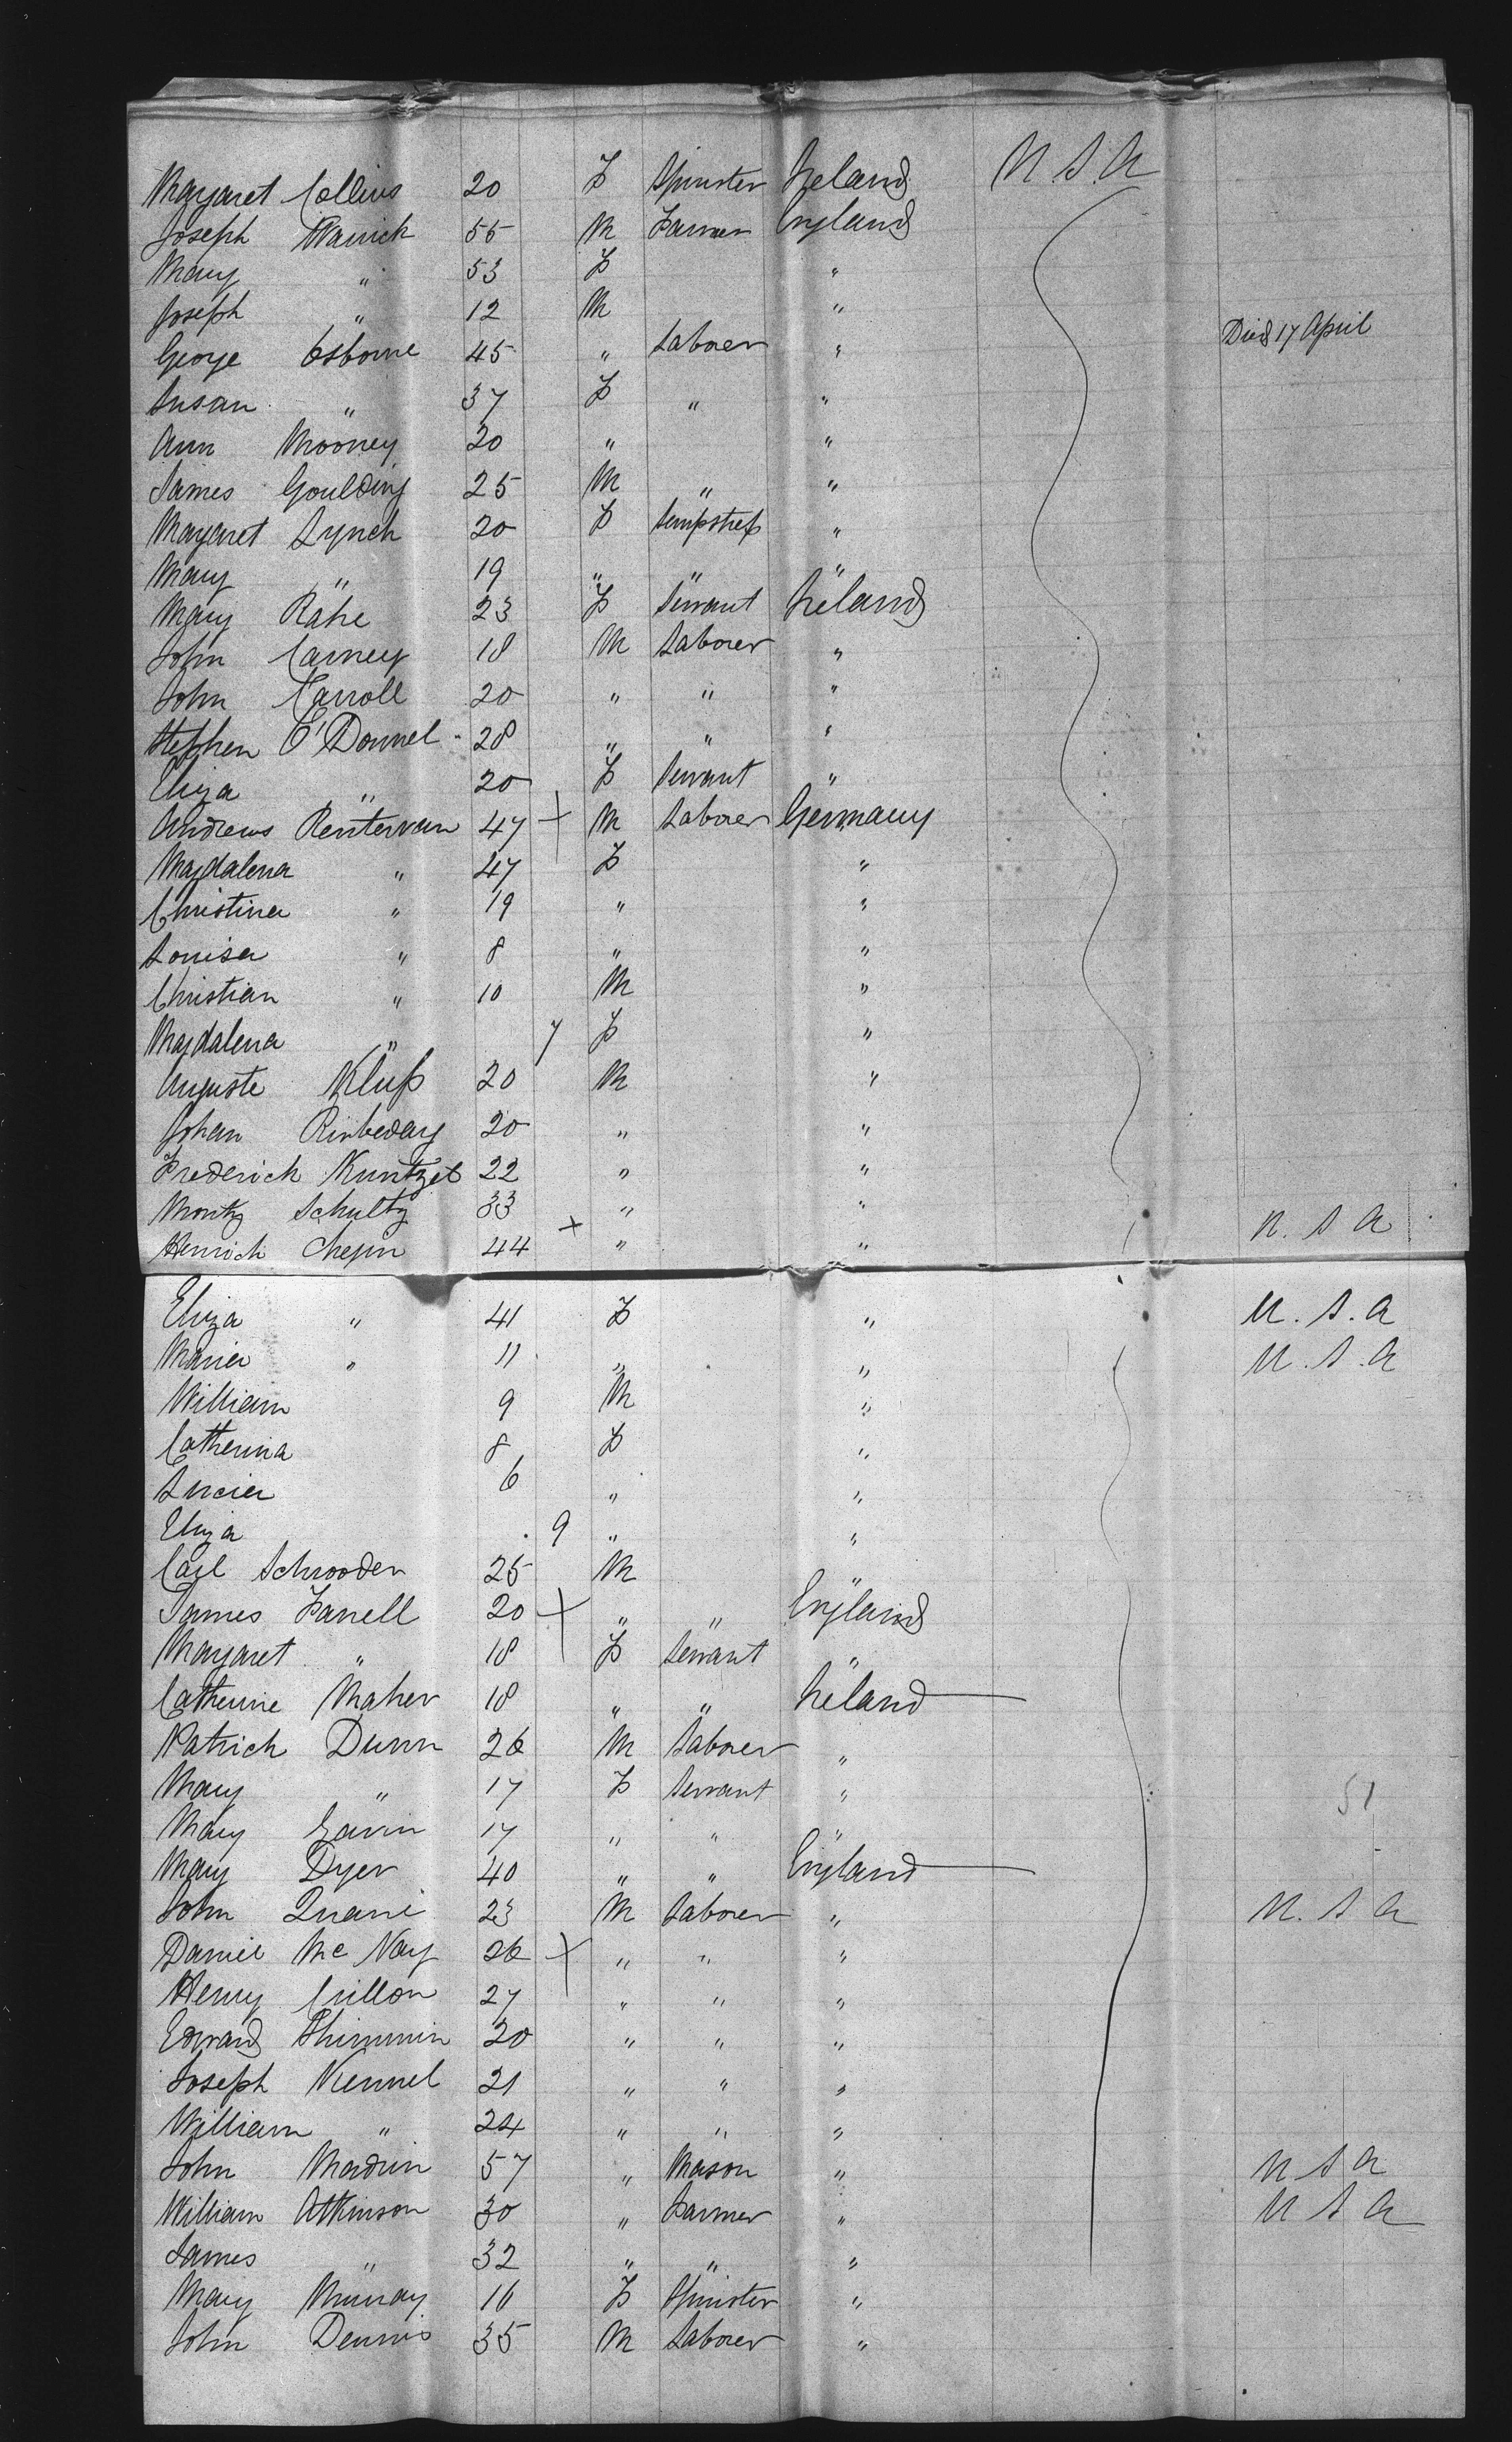 Margaret Collins 20 F Spinster Ireland U S A
Joseph Warrick 55 M Farmer England
Mary " 53 F "
Joseph " 12 M "
George Osborne 45 " Laborer " Died 17 April
Susan " 37 F " "
Ann Mooney 20 " "
James Goulding 25 M " "
Margaret Lynch 20 F Sempstress "
Mary " 19 " " "
Mary Rahe 23 F Servant Ireland
John Carney 18 M Laborer "
John Carroll 20 " " "
Stephen O'Donnel 28 " " "
Eliza " 20 F Servant "
Andrews Rentervan 47 + M Laborer Germany
Magdalena " 47 F "
Christina " 19 " "
Louisa " 8 " "
Christian " 10 M "
Magdalena " 7 F "
Auguste Kluss 20 M "
Johan 20 " "
Frederick Kuntzel 22 " "
Moritz Schultz 33 " "
Henrich Chejin 44 + " " U. S A
Eliza " 41 F " U. S. A
Maria " 11 " " U. S. A
William 9 M "
Catherina 8 F "
Lucia 6 " "
Eliza 9 " "
Carl Schrooder 25 M "
James Farrell 20 + " " England
Margaret " 18 F Servant "
Catherine Maher 18 " " Ireland
Patrick Dunn 26 M Laborer "
Mary " 17 F Servant " 51
Mary Gavin 17 " " "
Mary Dyer 40 " " England
John Quani 23 M Laborer " U. S A
Daniel Mc Nay 26 + " " "
Henry Crillon 27 " " "
Edward Shimmin 20 " " "
Joseph Kennel 21 " " "
William " 24 " " "
John Madrin 57 " Mason " U S A
William Atkinson 30 " Farmer " U S A
James " 32 " " "
Mary Murray 16 F Spinster "
John Dennis 35 M Laborer "